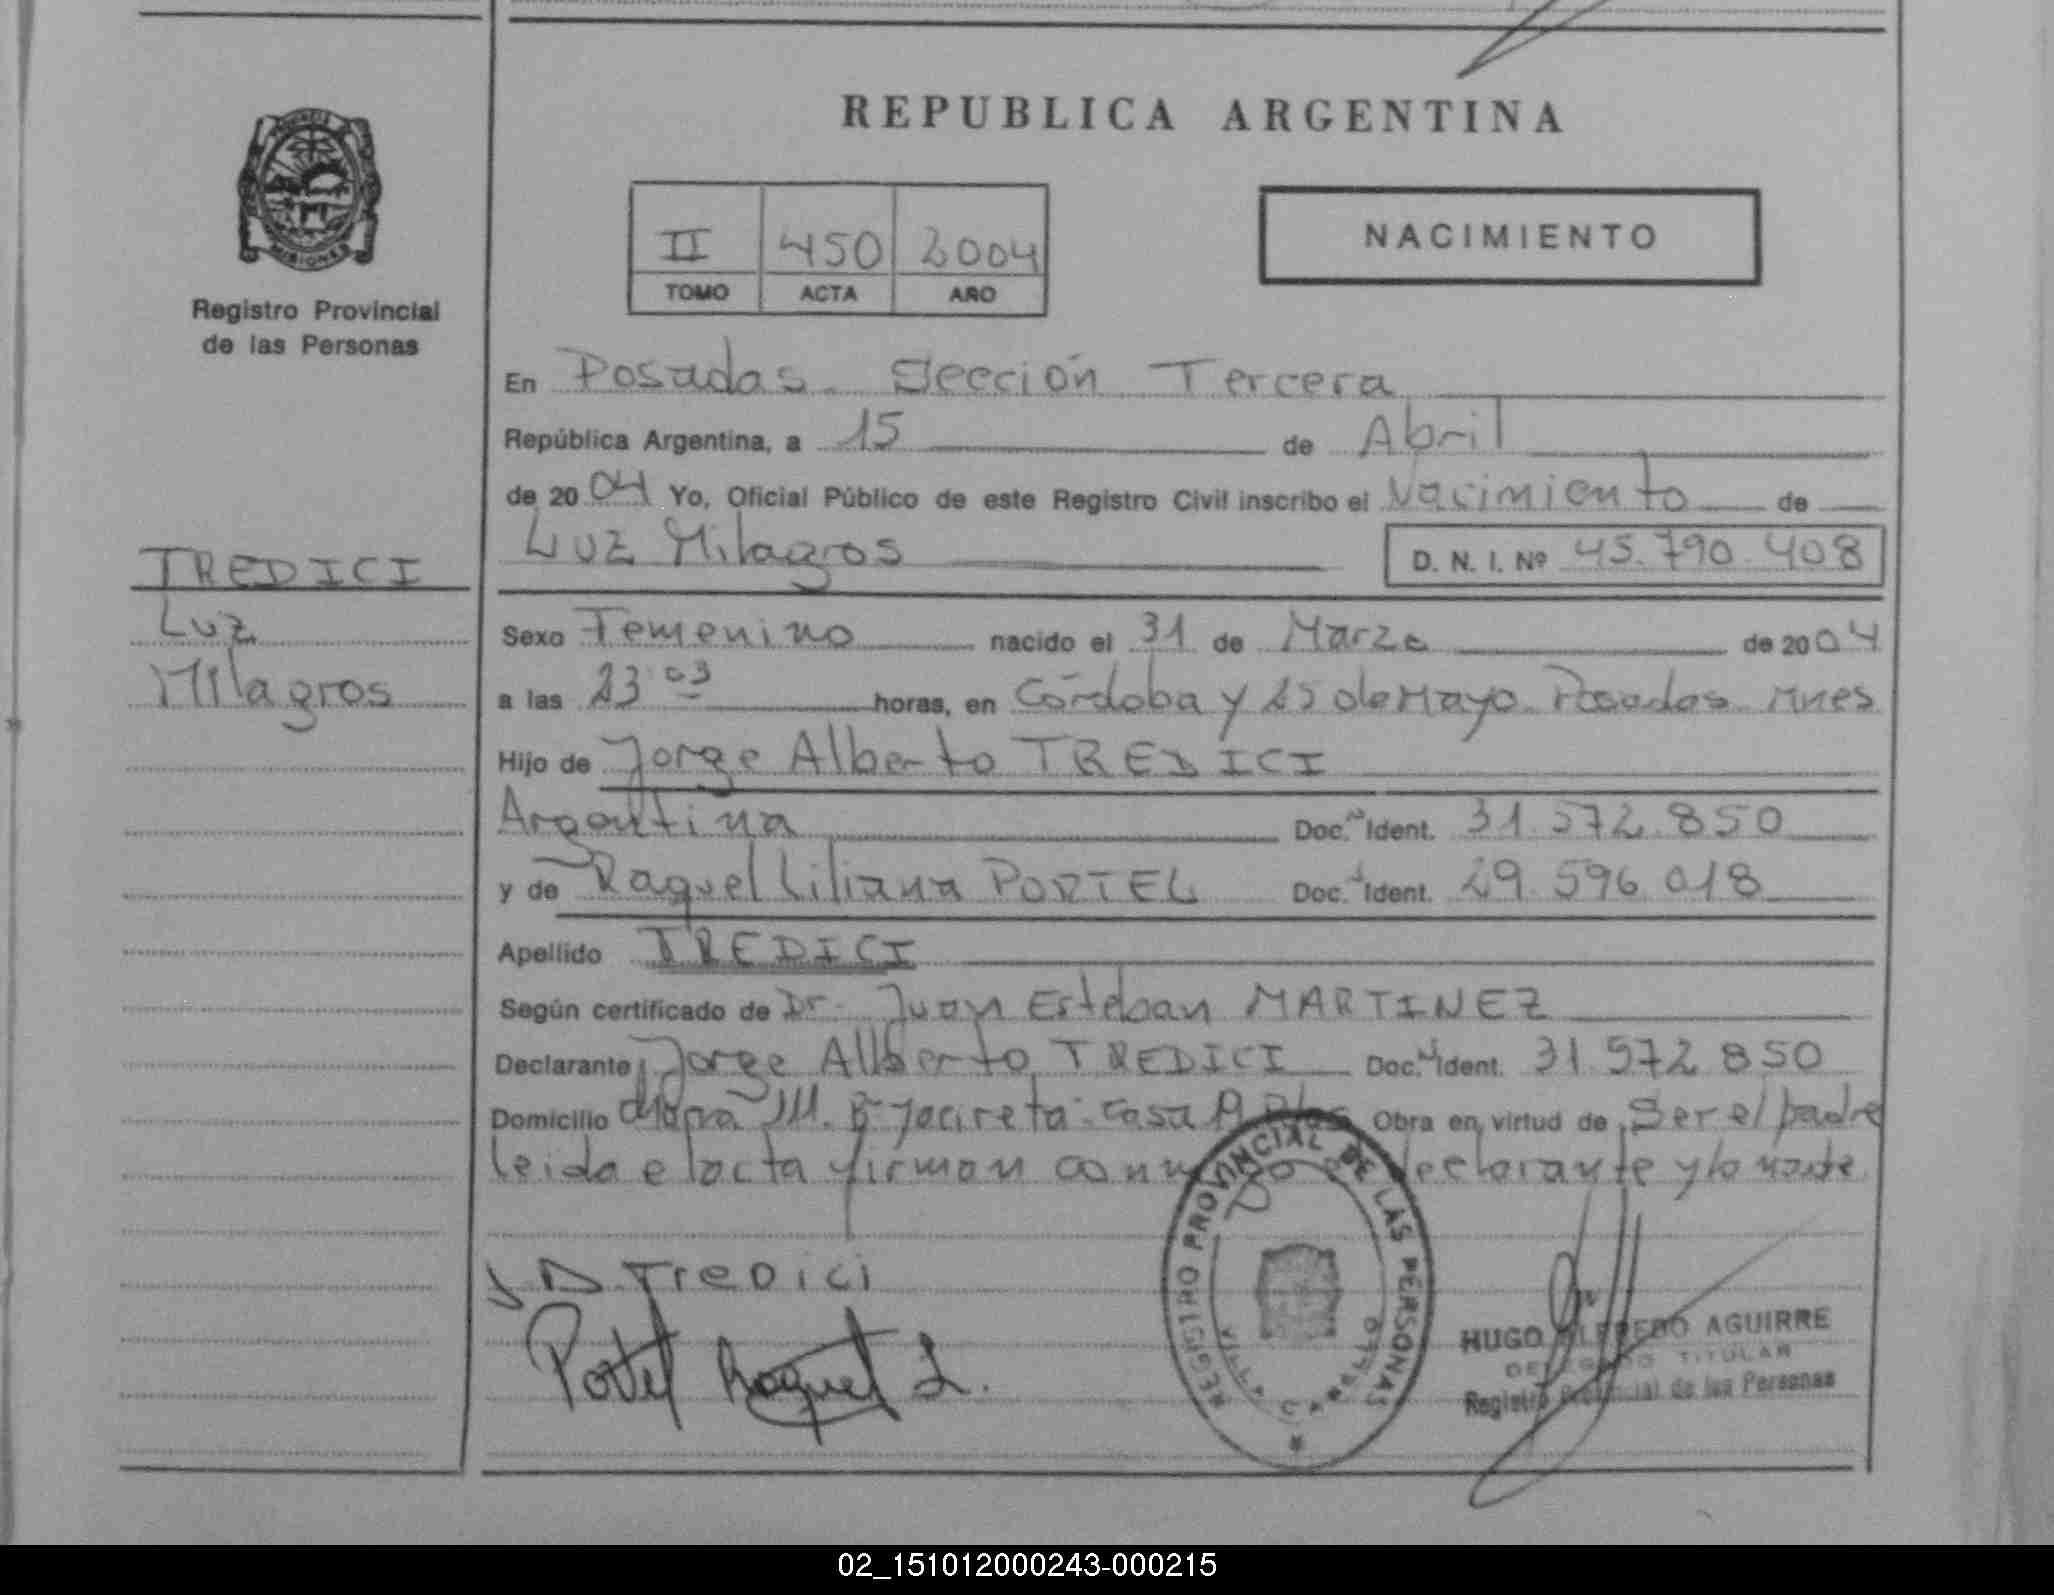 REPUBLICA ARGENTINA
II 450 2004
TOMO ACTA AÑO
NACIMIENTO
PROVINCIA
MISIONES
Registro Provincial
de las Personas
En Posadas. Sección Tercera
República Argentina, a 15 de Abril
de 2004 Yo, Oficial Público de este Registro Civil inscribo el Nacimiento de
Luz Milagros D. N. I. Nº 45.790.408
TREDICI
Luz
Milagros
Sexo Femenino nacido el 31 de Marzo de 2004
a las 23 03 horas, en Córdoba y 25 de Mayo. Posadas. Mnes
Hijo de Jorge Alberto TREDICI
Argentina Doc. Ident. 31.572.850
y de Raquel Liliana PORTEL Doc. Ident. 29.596.018
Apellido TREDICI
Según certificado de Dr. Juan Esteban MARTINEZ
Declarante Jorge Alberto TREDICI Doc. Ident. 31.572.850
Domicilio Yacireta. Casa Obra en virtud de Ser el padre
Leida el acta firman conmigo el declarante y la madre
J A Tredici
Portel Raquel L.
REGISTRO PROVINCIAL DE LAS PERSONAS
VILLA CABELLO
HUGO ALFREDO AGUIRRE
DELEGADO TITULAR
Registro Provincial de las Personas
02_151012000243-000215